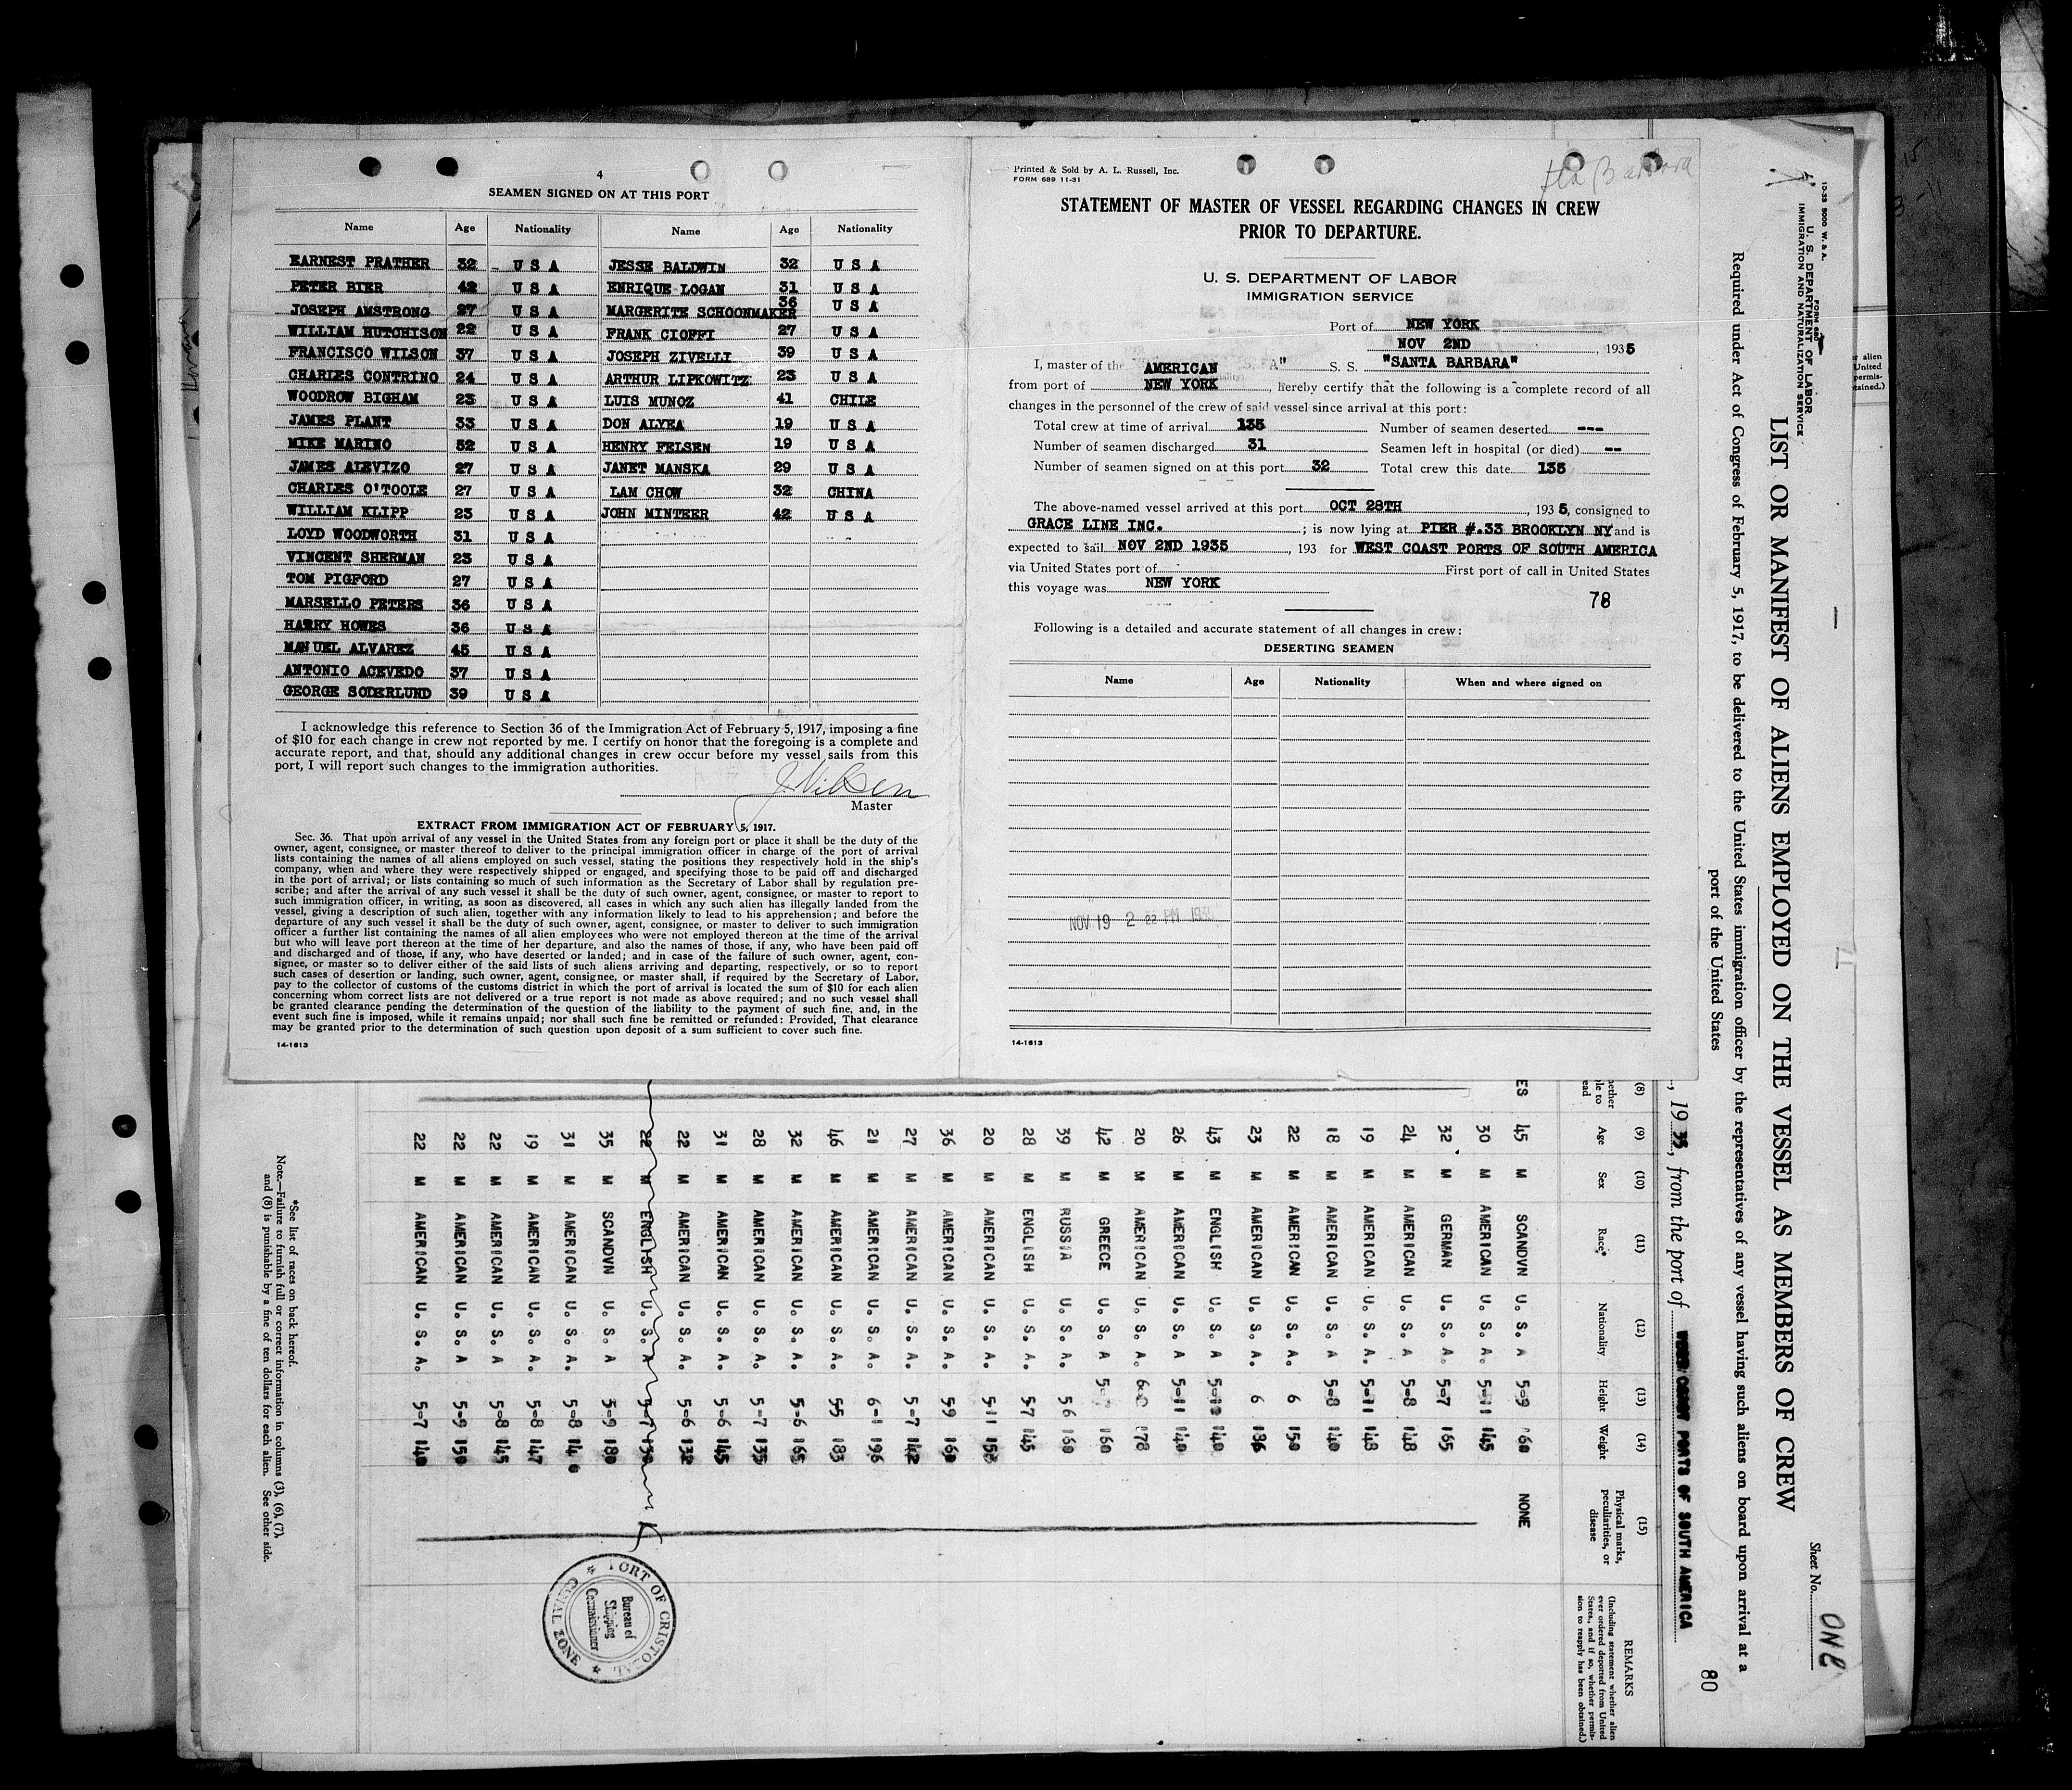 4
SEAMEN SIGNED ON AT THIS PORT
Name Age Nationality Name Age Nationality
EARNEST PRATHER 32 U S A JESSE BALDWIN 32 U S A
PETER BIER 42 U S A ENRIQUE LOGAN 31 U S A
JOSEPH AMSTRONG 27 U S A MARGERITE SCHOONMAKER 36 U S A
WILLIAM HUTCHISON 22 U S A FRANK CIOFFI 27 U S A
FRANCISCO WILSON 37 U S A JOSEPH ZIVELLI 39 U S A
CHARLES CONTRINO 24 U S A ARTHUR LIPKOWITZ 23 U S A
WOODROW BIGHAM 23 U S A LUIS MUNOZ 41 CHILE
JAMES PLANT 33 U S A DON ALYEA 19 U S A
MIKE MARINO 52 U S A HENRY FELSEN 19 U S A
JAMES ALEVIZO 27 U S A JANET MANSKA 29 U S A
CHARLES O'TOOLE 27 U S A LAM CHOW 32 CHINA
WILLIAM KLIPP 23 U S A JOHN MINTEER 42 U S A
LOYD WOODWORTH 31 U S A
VINCENT SHERMAN 23 U S A
TOM PIGFORD 27 U S A
MARSELLO PETERS 36 U S A
HARRY HOWES 36 U S A
MANUEL ALVAREZ 45 U S A
ANTONIO ACEVEDO 37 U S A
GEORGE SODERLUND 39 U S A
I acknowledge this reference to Section 36 of the Immigration Act of February 5, 1917, imposing a fine
of $10 for each change in crew not reported by me. I certify on honor that the foregoing is a complete and
accurate report, and that, should any additional changes in crew occur before my vessel sails from this
port, I will report such changes to the immigration authorities.
J. Nilsen
Master
EXTRACT FROM IMMIGRATION ACT OF FEBRUARY 5, 1917.
Sec. 36. That upon arrival of any vessel in the United States from any foreign port or place it shall be the duty of the
owner, agent, consignee, or master thereof to deliver to the principal immigration officer in charge of the port of arrival
lists containing the names of all aliens employed on such vessel, stating the positions they respectively hold in the ship's
company, when and where they were respectively shipped or engaged, and specifying those to be paid off and discharged
in the port of arrival; or lists containing so much of such information as the Secretary of Labor shall by regulation pre-
scribe; and after the arrival of any such vessel it shall be the duty of such owner, agent, consignee, or master to report to
such immigration officer, in writing, as soon as discovered, all cases in which any such alien has illegally landed from the
vessel, giving a description of such alien, together with any information likely to lead to his apprehension; and before the
departure of any such vessel it shall be the duty of such owner, agent, consignee, or master to deliver to such immigration
officer a further list containing the names of all alien employees who were not employed thereon at the time of the arrival
but who will leave port thereon at the time of her departure, and also the names of those, if any, who have been paid off
and discharged and of those, if any, who have deserted or landed; and in case of the failure of such owner, agent, con-
signee, or master so to deliver either of the said lists of such aliens arriving and departing, respectively, or so to report
such cases of desertion or landing, such owner, agent, consignee, or master shall, if required by the Secretary of Labor,
pay to the collector of customs of the customs district in which the port of arrival is located the sum of $10 for each alien
concerning whom correct lists are not delivered or a true report is not made as above required; and no such vessel shall
be granted clearance pending the determination of the question of the liability to the payment of such fine, and, in the
event such fine is imposed, while it remains unpaid; nor shall such fine be remitted or refunded: Provided, That clearance
may be granted prior to the determination of such question upon deposit of a sum sufficient to cover such fine.
14-1613
Printed & Sold by A. L. Russell, Inc.
FORM 689 11-31
Barbara
STATEMENT OF MASTER OF VESSEL REGARDING CHANGES IN CREW
PRIOR TO DEPARTURE.
U. S. DEPARTMENT OF LABOR
IMMIGRATION SERVICE
Port of NEW YORK
NOV 2ND, 1935
I, master of the AMERICAN A" S. S. "SANTA BARBARA"
from port of NEW YORK, hereby certify that the following is a complete record of all
changes in the personnel of the crew of said vessel since arrival at this port:
Total crew at time of arrival 135 Number of seamen deserted ---
Number of seamen discharged 31 Seamen left in hospital (or died) --
Number of seamen signed on at this port 32 Total crew this date 135
The above-named vessel arrived at this port OCT 28TH, 1935, consigned to
GRACE LINE INC.; is now lying at PIER #.33 BROOKLYN NY and is
expected to sail NOV 2ND 1935, 193 for WEST COAST PORTS OF SOUTH AMERICA
via United States port of First port of call in United States
this voyage was NEW YORK
78
Following is a detailed and accurate statement of all changes in crew:
DESERTING SEAMEN
Name Age Nationality When and where signed on
NOV 19 2 22 PM
14-1613
10-33 5000 W. & A.
FORM 680
U. S. DEPARTMENT OF LABOR
IMMIGRATION AND NATURALIZATION SERVICE
Sheet No. ONE
LIST OR MANIFEST OF ALIENS EMPLOYED ON THE VESSEL AS MEMBERS OF CREW
Required under Act of Congress of February 5, 1917, to be delivered to the United States immigration officer by the representatives of any vessel having such aliens on board upon arrival at a
port of the United States
80
, 1935, from the port of WEST COAST PORTS OF SOUTH AMERICA
(8) (9) Age (10) Sex (11) Race* (12) Nationality (13) Height (14) Weight (15) Physical marks, peculiarities, or disease
REMARKS
(Including statement whether alien
ever ordered deported from United
States, and if so, whether permis-
sion to reapply has been obtained.)
45 M SCANDVN U. S. A 5-9 160 NONE
30 M AMERICAN U. S. A. 5-11 145
32 M GERMAN U. S. A. 5-7 165
24 M AMERICAN U. S. A 5-8 148
19 M AMERICAN U. S. A. 5-11 148
18 M AMERICAN U. S. A 5-8 140
22 M AMERICAN U. S. A. 6 150
23 M AMERICAN U. S. A. 6 196
43 M ENGLISH U. S. A 140
26 M AMERICAN U. S. A 5-11 140
20 M AMERICAN U. S. A. 178
42 M GREECE U. S. A 160
39 M RUSSIA U. S. A. 5 6 160
28 M ENGLISH U. S. A 5-7 145
20 M AMERICAN U. S. A. 5-11
36 M AMERICAN U. S. A. 59 160
27 M AMERICAN U. S. A. 5-7 142
21 M AMERICAN U. S. A. 6-1 196
46 M AMERICAN U. S. A. 55 183
32 M AMERICAN U. S. A. 5-6 165
28 M AMERICAN U. S. A. 5-7 135
31 M AMERICAN U. S. A. 5-6 145
22 M AMERICAN U. S. A. 5-6 132
22 M ENGLISH U. S. A 5-7 130
35 M SCANDVN U. S. A 5-9 180
31 M AMERICAN U. S. A. 5-8 140
19 M AMERICAN U. S. A. 5-8 147
22 M AMERICAN U. S. A 5-8 145
22 M AMERICAN U. S. A 5-9 150
22 M AMERICAN U. S. A. 5-7 140
PORT OF CRISTOBAL
CANAL ZONE
Bureau of
Shipping
Commissioner
*See list of races on back hereof.
Note.—Failure to furnish full or correct information in columns (3), (6), (7),
and (8) is punishable by a fine of ten dollars for each alien. See other side.